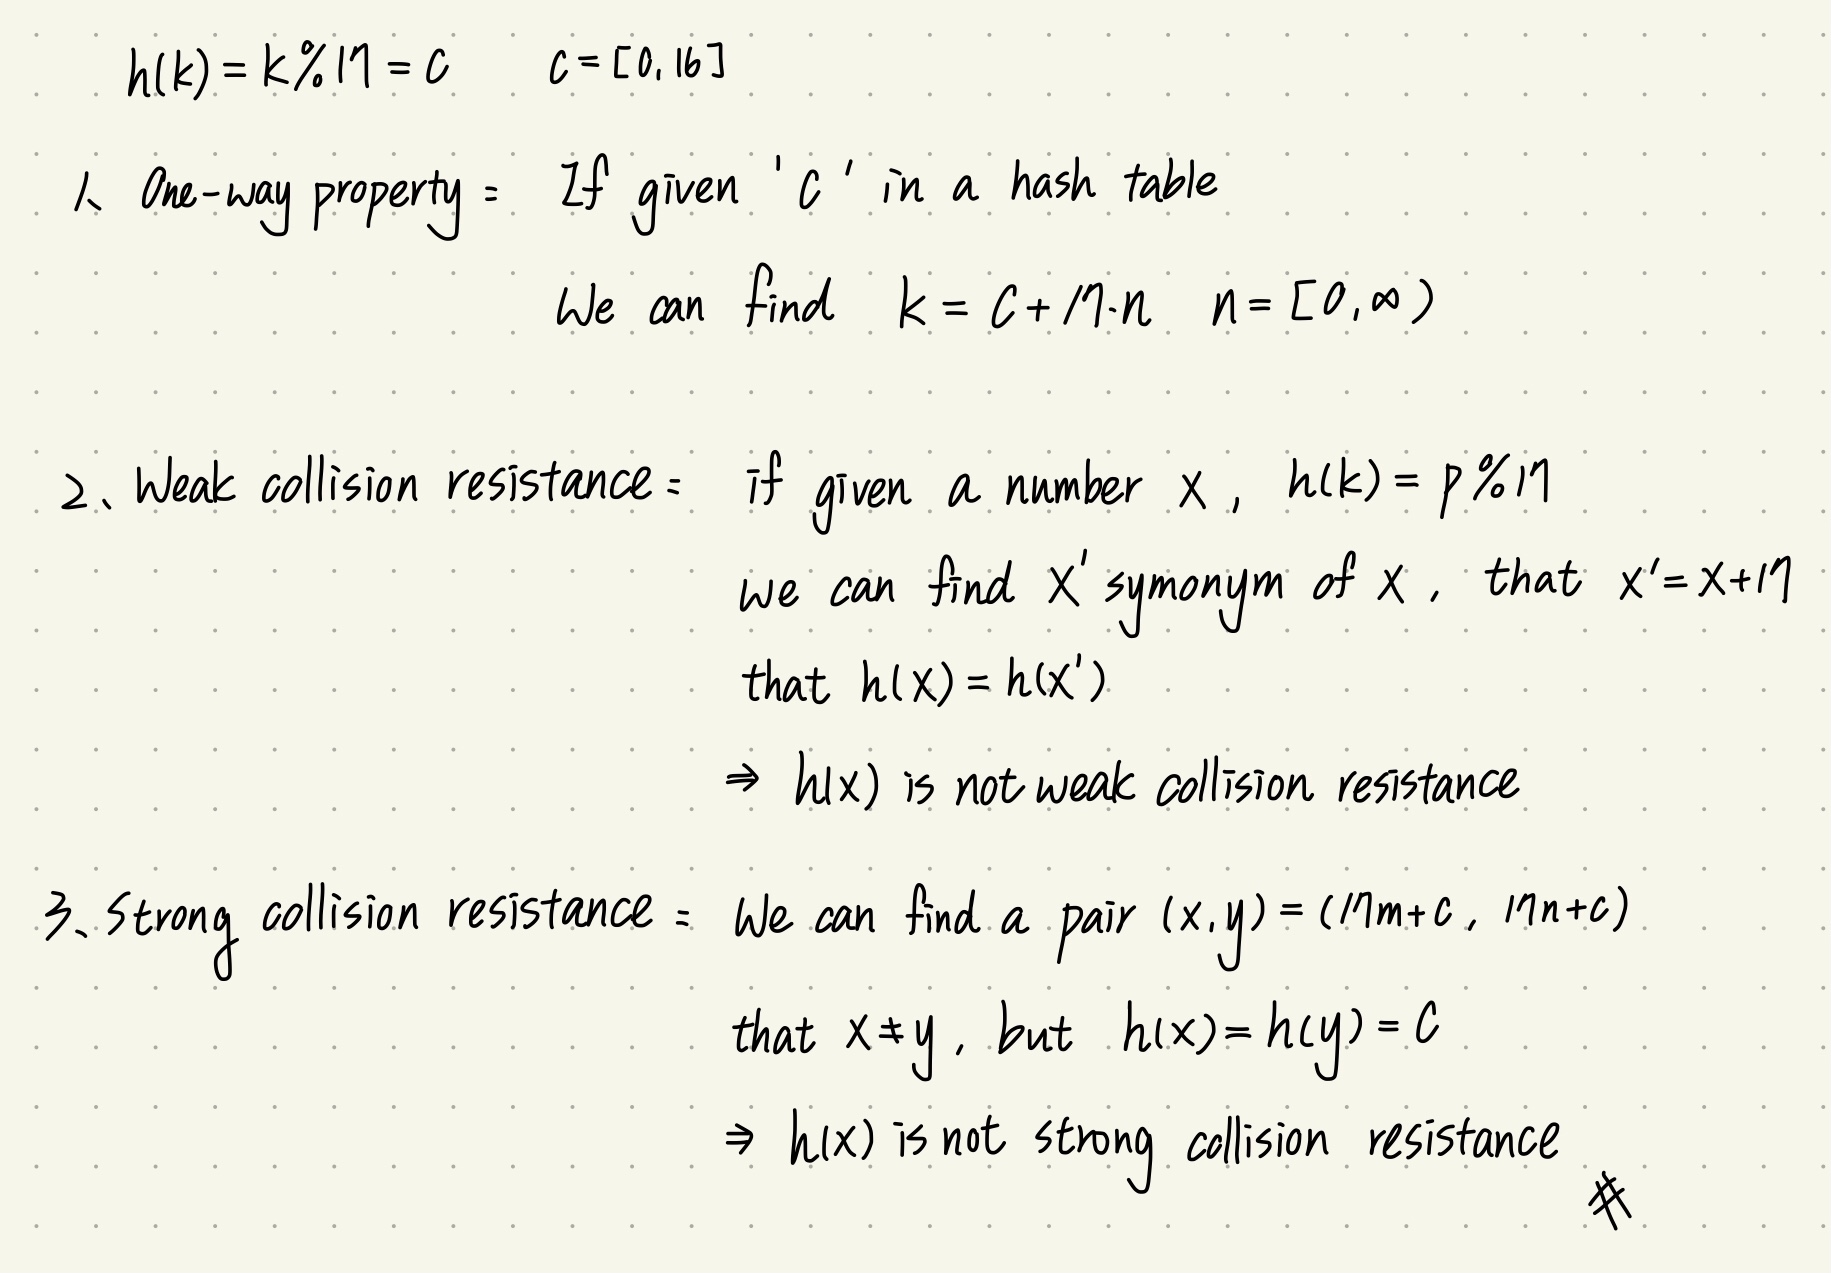 h(k) = k % 17 = c c = [0, 16]
1、 One-way property = If given 'c' in a hash table
We can find k = c + 17·n n = [0, ∞)
2、 Weak collision resistance = if given a number x, h(k) = p % 17
we can find x' symonym of x, that x' = x + 17
that h(x) = h(x')
⇒ h(x) is not weak collision resistance
3、 Strong collision resistance = We can find a pair (x, y) = (17m + c, 17n + c)
that x ≠ y, but h(x) = h(y) = c
⇒ h(x) is not strong collision resistance
#